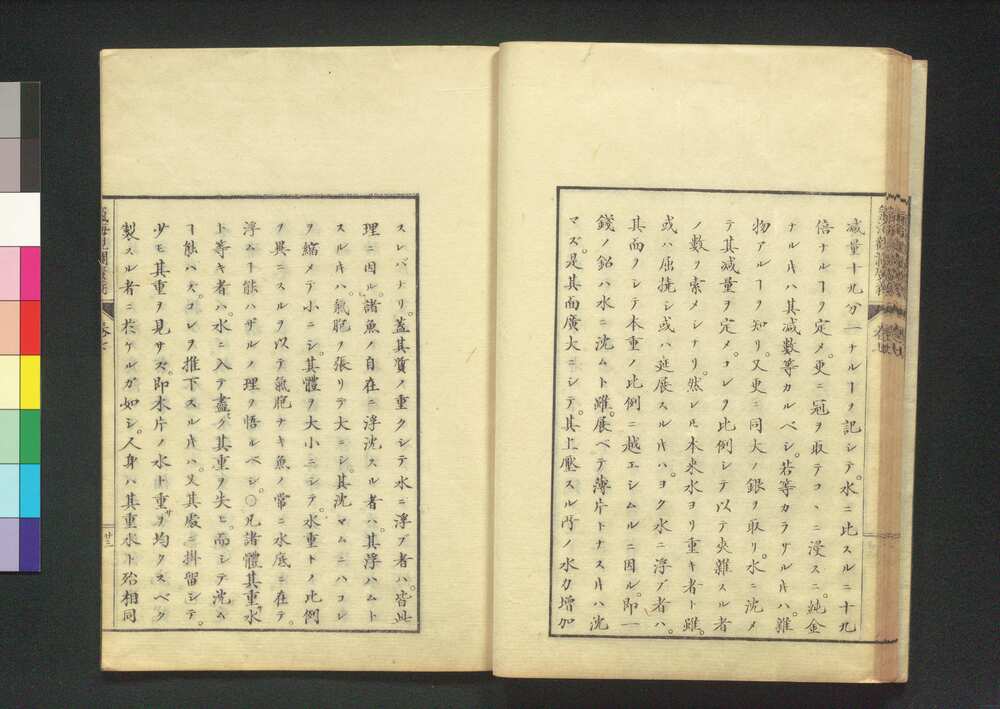 减量十九分一ナルヿヲ記シテ。水ニ比スルニ十九
倍ナルヿヲ定メ。更ニ冠ヲ取テコヽニ浸スニ。純金
ナルキハ其减數等カルベシ。若等カラサルキハ。雜
物アルヿヲ知リ。又更ニ同大ノ銀ヲ取リ。水ニ沈メ
テ其减量ヲ定メ。コレヲ比例シテ以テ夾雜スル者
ノ數ヲ索メシナリ。然レ𪜈本来水ヨリ重キ者ト雖。
或ハ屈撓シ或ハ延展スルキハ。ヨク水ニ浮ブ者ハ。
其面ヲノシテ本重ノ比例ニ越エシムルニ因ル。即一
錢ノ鉛ハ水ニ沈ムト雖。展ベテ薄片トナスキハ沈
マズ。是其面廣大ニシテ。其上壓スル所ノ水力增加
スレバナリ。蓋其質ノ重クシテ水ニ浮ブ者ハ。皆此
理ニ因ル。諸魚ノ自在ニ浮沈スル者ハ。其浮ハムト
スルキハ。氣胞ヲ張リテ大ニシ。其沈マムニハコレ
ヲ縮メテ小ニシ。其體ヲ大小ニシテ。水重トノ比例
ヲ異ニスルヲ以テ氣胞ナキ魚ノ常ニ水底ニ在テ。
浮ムヿ能ハザルノ理ヲ悟ルベシ。〇凡諸體其重。水
ト等キ者ハ。水ニ入テ盡ク其重ヲ失ヒ。而シテ沈ム
ヿ能ハズ。コレヲ推下スルキハ。又其處ニ掛留シテ。
少モ其重ヲ見サズ。即木片ノ水ト重サヲ均クスベク
製スル者ニ於ケルガ如シ。人身ハ其重水ト殆相同
卷七
廿三